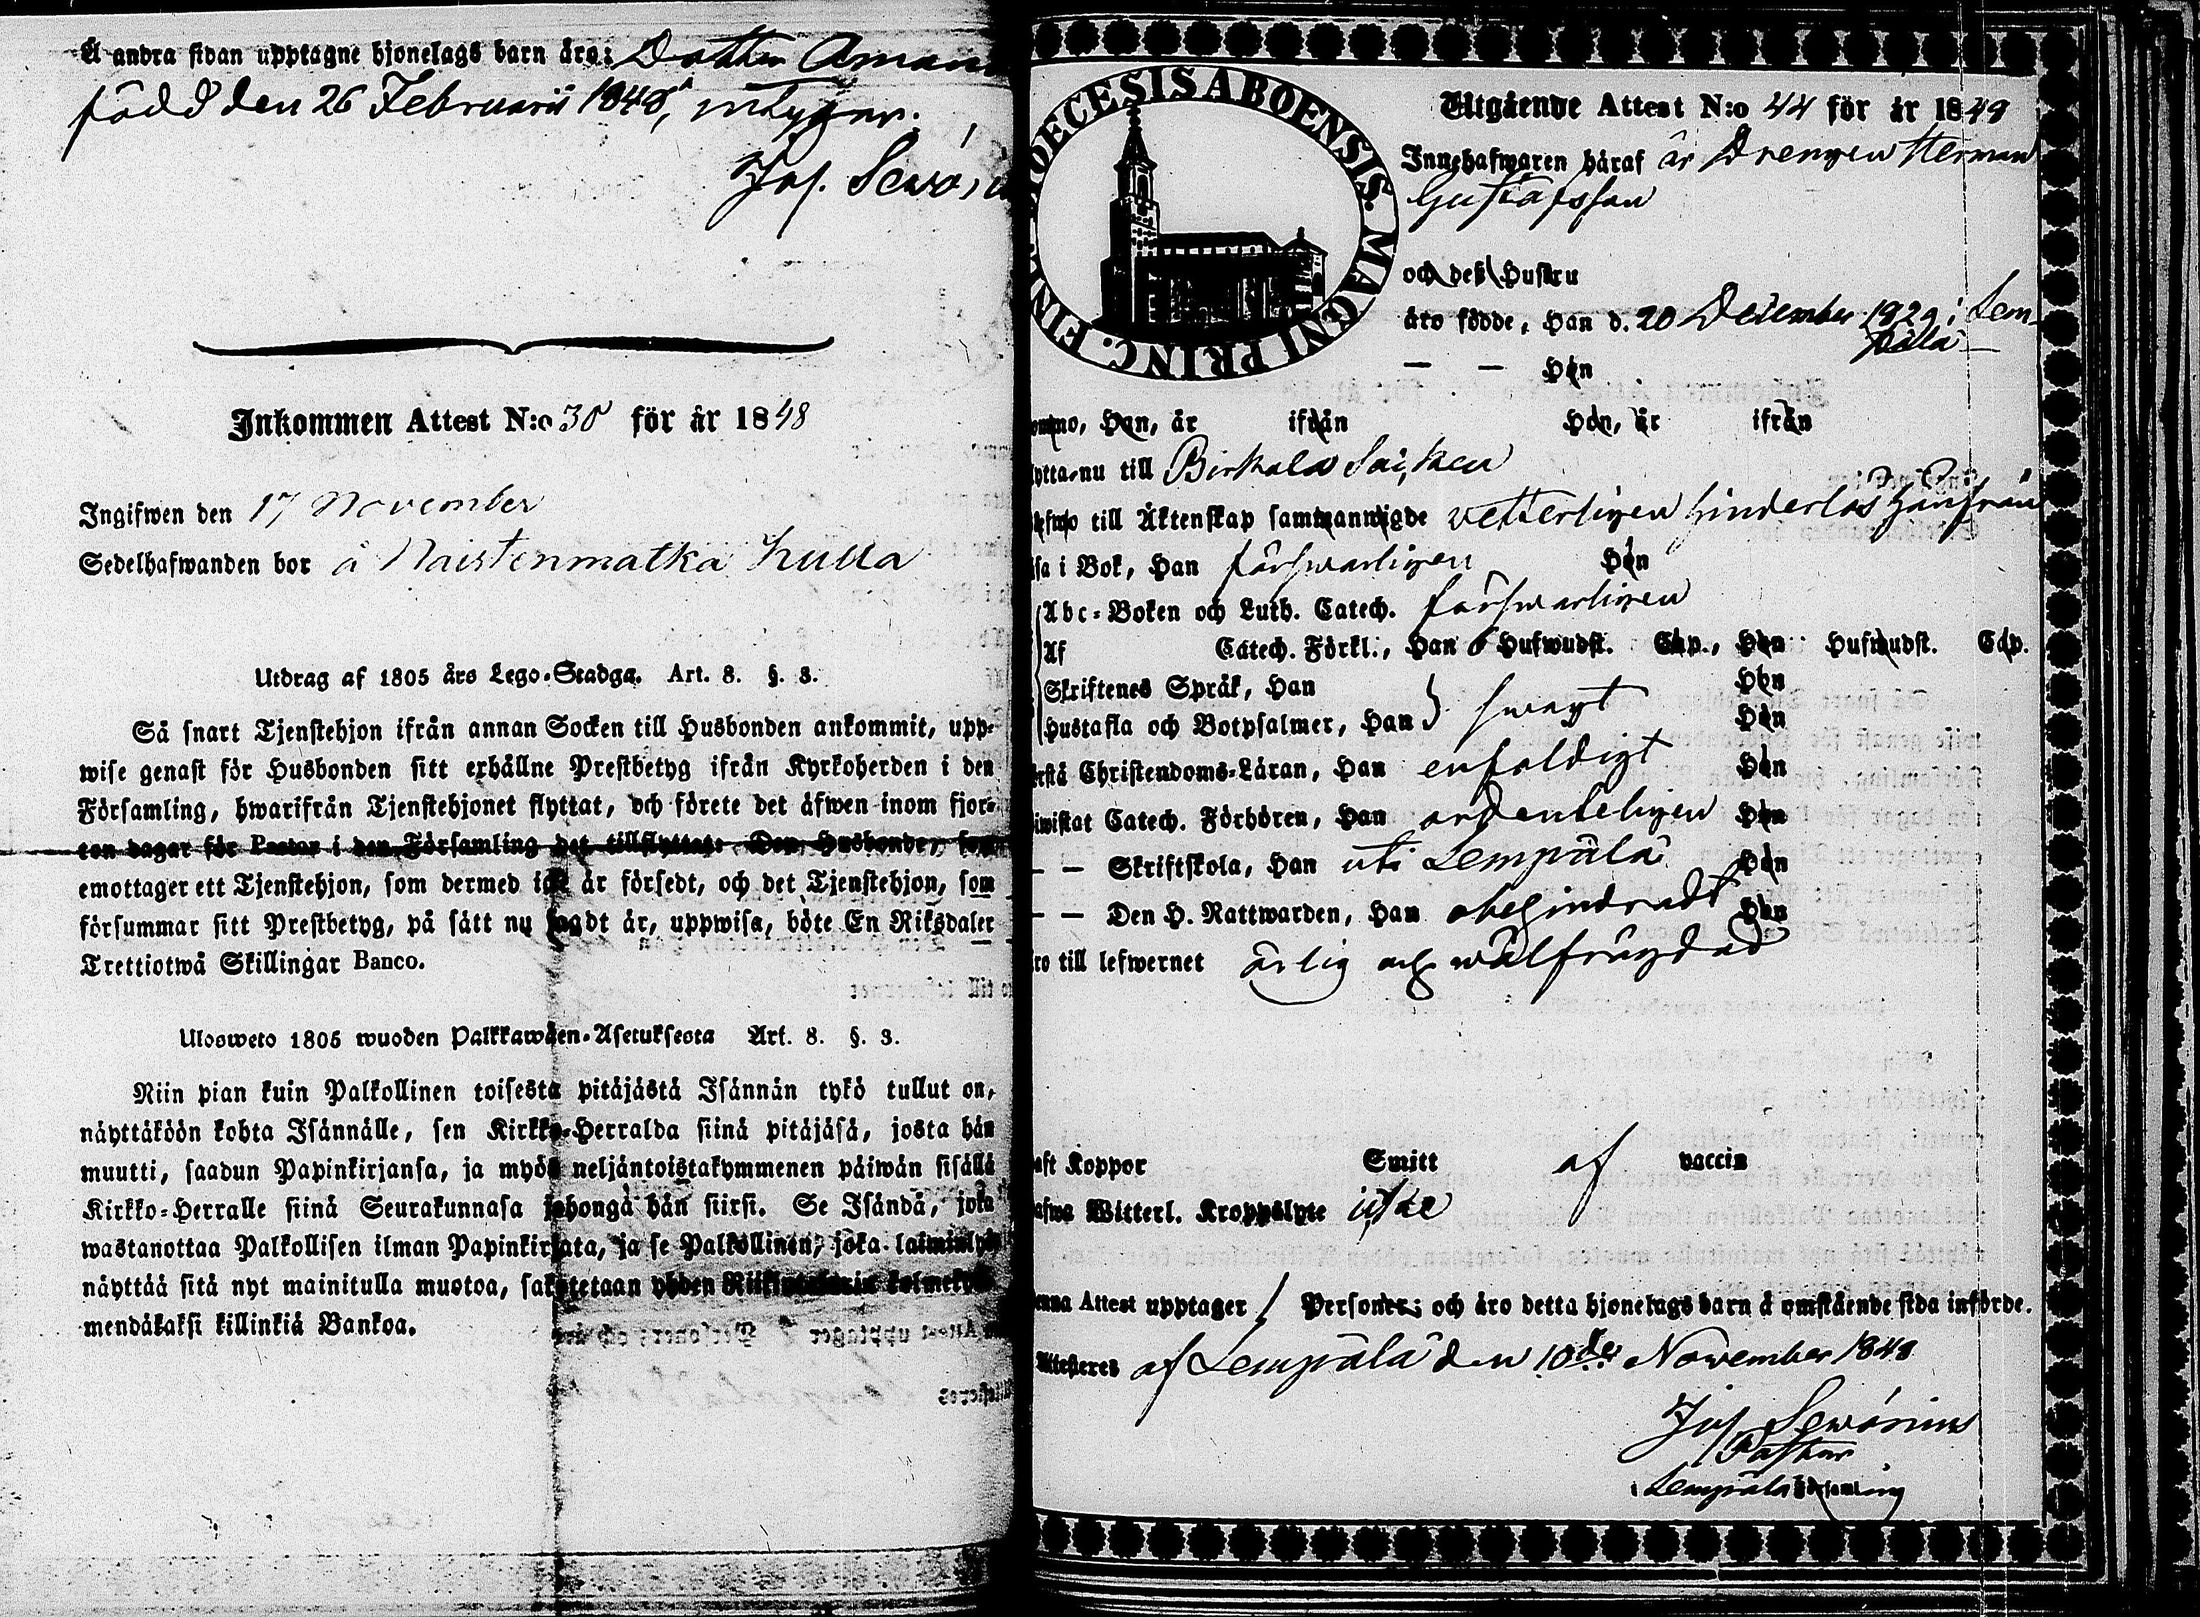 Å andra sidan upptagne hjonelags barn äro: Dottren Aman
född den 26 Februarii 1848, intygar.
Jos. Sewón
Inkommen Attest N:o 38 för år 1848
Ingifwen den 17 November
Sedelhafwanden bor å Naistenmatka Kulla
Utdrag af 1805 års Lego-Stadga. Art. 8. §. 3.
Så snart Tjenstehjon ifrån annan Socken till Husbonden ankommit, upp-
wise genast för Husbonden sitt erhållne Prestbetyg ifrån Kyrkoherden i den
Församling, hwarifrån Tjenstehjonet flyttat, och förete det äfwen inom fjor-
ton dagar för Pastor i den Församling det tillflyttat. Den Husbonde, som
emottager ett Tjenstehjon, som dermed icke är försedt, och det Tjenstehjon, som
försummar sitt Prestbetyg, på sätt nu sagdt är, uppwisa, böte En Riksdaler
Trettiotwå Skillingar Banco.
Ulosweto 1805 wuoden Palkkawäen-Asetuksesta Art. 8. §. 3.
Niin pian kuin Palkollinen toisesta pitäjästä Isännän tykö tullut on,
näyttäköön kohta Isännälle, sen Kirkko-Herralda siinä pitäjäsä, josta hän
muutti, saadun Papinkirjansa, ja myös neljäntoistakymmenen päiwän sisällä
Kirkko-Herralle siinä Seurakunnasa johonga hän siirsi. Se Isändä, joka
wastanottaa Palkollisen ilman Papinkirjata, ja se Palkollinen, joka laiminlyö
näyttää sitä nyt mainitulla muotoa, sakotetaan yhden Riiksdalerin kolmekym-
mendäkaksi killinkiä Bankoa.
DIOECESIS ABOENSIS. MAGNI PRINC. FIN
Utgående Attest N:o 44 för år 1848
Innehafwaren häraf är Drengen Herman
Gustafsson
och deß Hustru
äro födde, Han d. 20 December 1829 i Lem-
päla
— — Hon
omno, Han, är ifrån Hon, är ifrån
ytta nu till Birkala Socken
efwo till Äktenskap sammanwigde vetterligen hinderlös härifrån
sa i Bok, Han försvarligen Hon
Abc-Boken och Luth. Catech. försvarligen
Af Catech. Förkl., Han 6 Hufwudst. Cap., Hon Hufwudst. Cap.
Skriftenes Språk, Han Hon
Hustafla och Botpsalmer, Han } swagt Hon
rstå Christendoms-Läran, Han enfaldigt Hon
iwistat Catech. Förhören, Han ordenteligen Hon
— — Skriftskola, Han uti Lempälä Hon
— — Den H. Nattwarden, Han obehindradt Hon
ro till lefwernet ärlig och wälfrägdad
aft Koppor Smitt af vaccin
afwa Witterl. Kroppslyte icke
enna Attest upptager 1 Personer; och äro detta hjonelags barn å omstående sida införde.
Attesteres af Lempälä den 10de November 1848
Jos Sewónius
Pastor
i Lempälä Församling